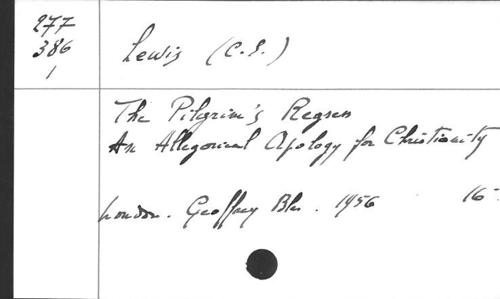 277
386
1
Lewis (C.S.)
The Pilgrim's Regress
An Allegorical Apology for Christianity
London. Geoffrey Bles. 1956 16